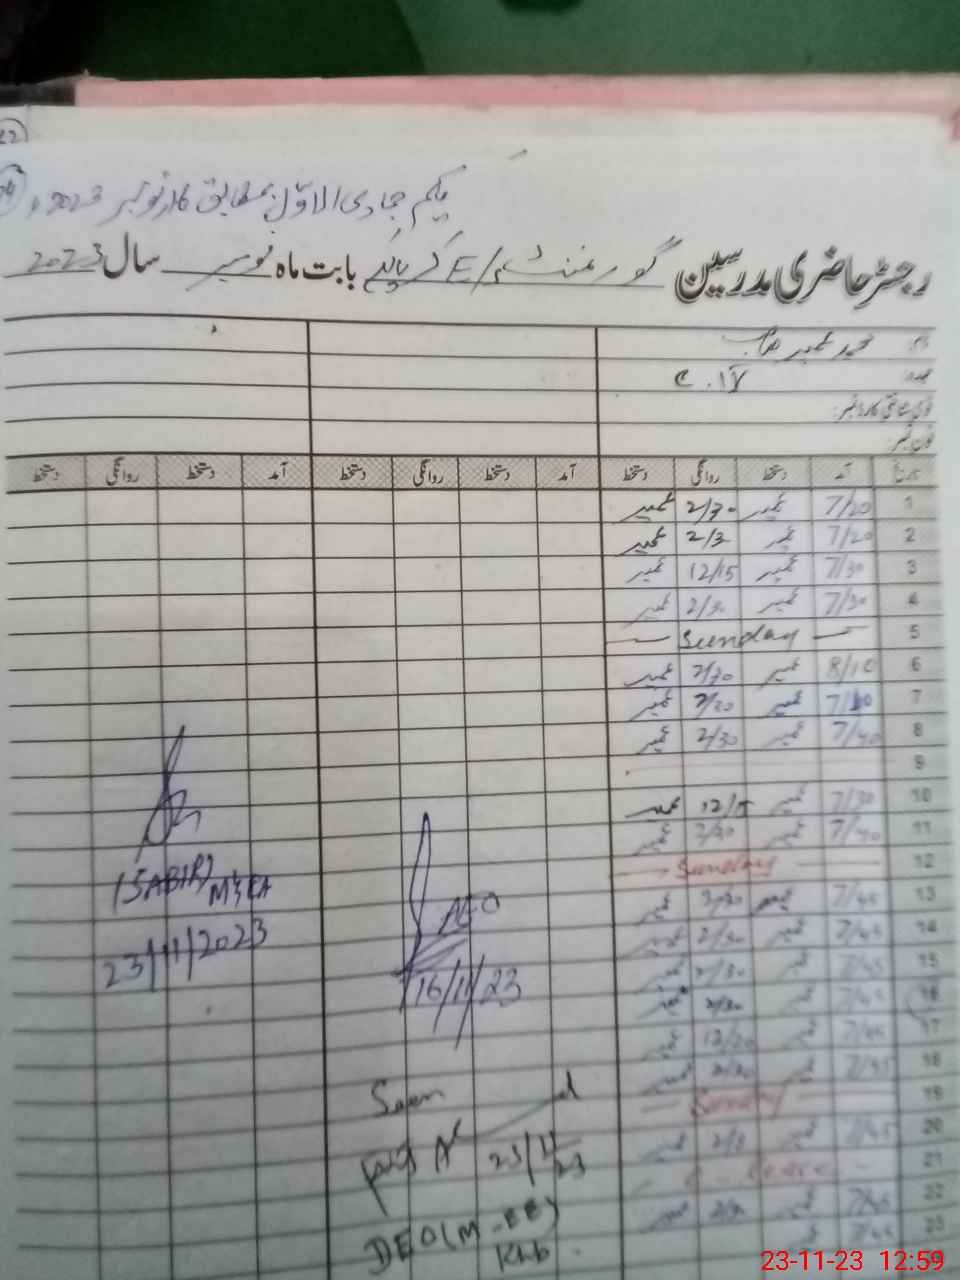 یکم جمادی الاول بمطابق نومبر 2023ء
رجسٹر حاضری مدرسین گورنمنٹ بابت ماہ نومبر سال 2023
نام: محمد عمیر
عہدہ: C.IV
قومی شناختی کارڈ نمبر:
فون نمبر:
تاریخ آمد دستخط روانگی دستخط آمد دستخط روانگی دستخط آمد دستخط روانگی دستخط
1 7/20 عمیر 2/30 عمیر
2 7/20 عمیر 2/3 عمیر
3 7/30 عمیر 12/15 عمیر
4 7/30 عمیر 2/30 عمیر
5 Sunday
6 8/10 عمیر 2/30 عمیر
7 عمیر 2/30 عمیر
8 7/40 عمیر 2/30 عمیر
9
10 7/30 عمیر 12/15 عمیر
11 7/40 عمیر 2/30 عمیر
12 Sunday
13 7/45 عمیر 2/30 عمیر
14 7/45 عمیر 2/30 عمیر
15 7/45 عمیر 2/30 عمیر
16 7/45 عمیر 2/30 عمیر
17 7/45 عمیر 12/30 عمیر
18 7/45 عمیر 2/30 عمیر
19 Sunday
20 7/45 عمیر 2/3 عمیر
21 Leave
22 7/45 عمیر عمیر
23 7/45
(SABIR)
MEA
23/11/2023
AEO
16/11/23
Seen
23/11/23
DEO(M-EE)
Khb
23-11-23 12:59